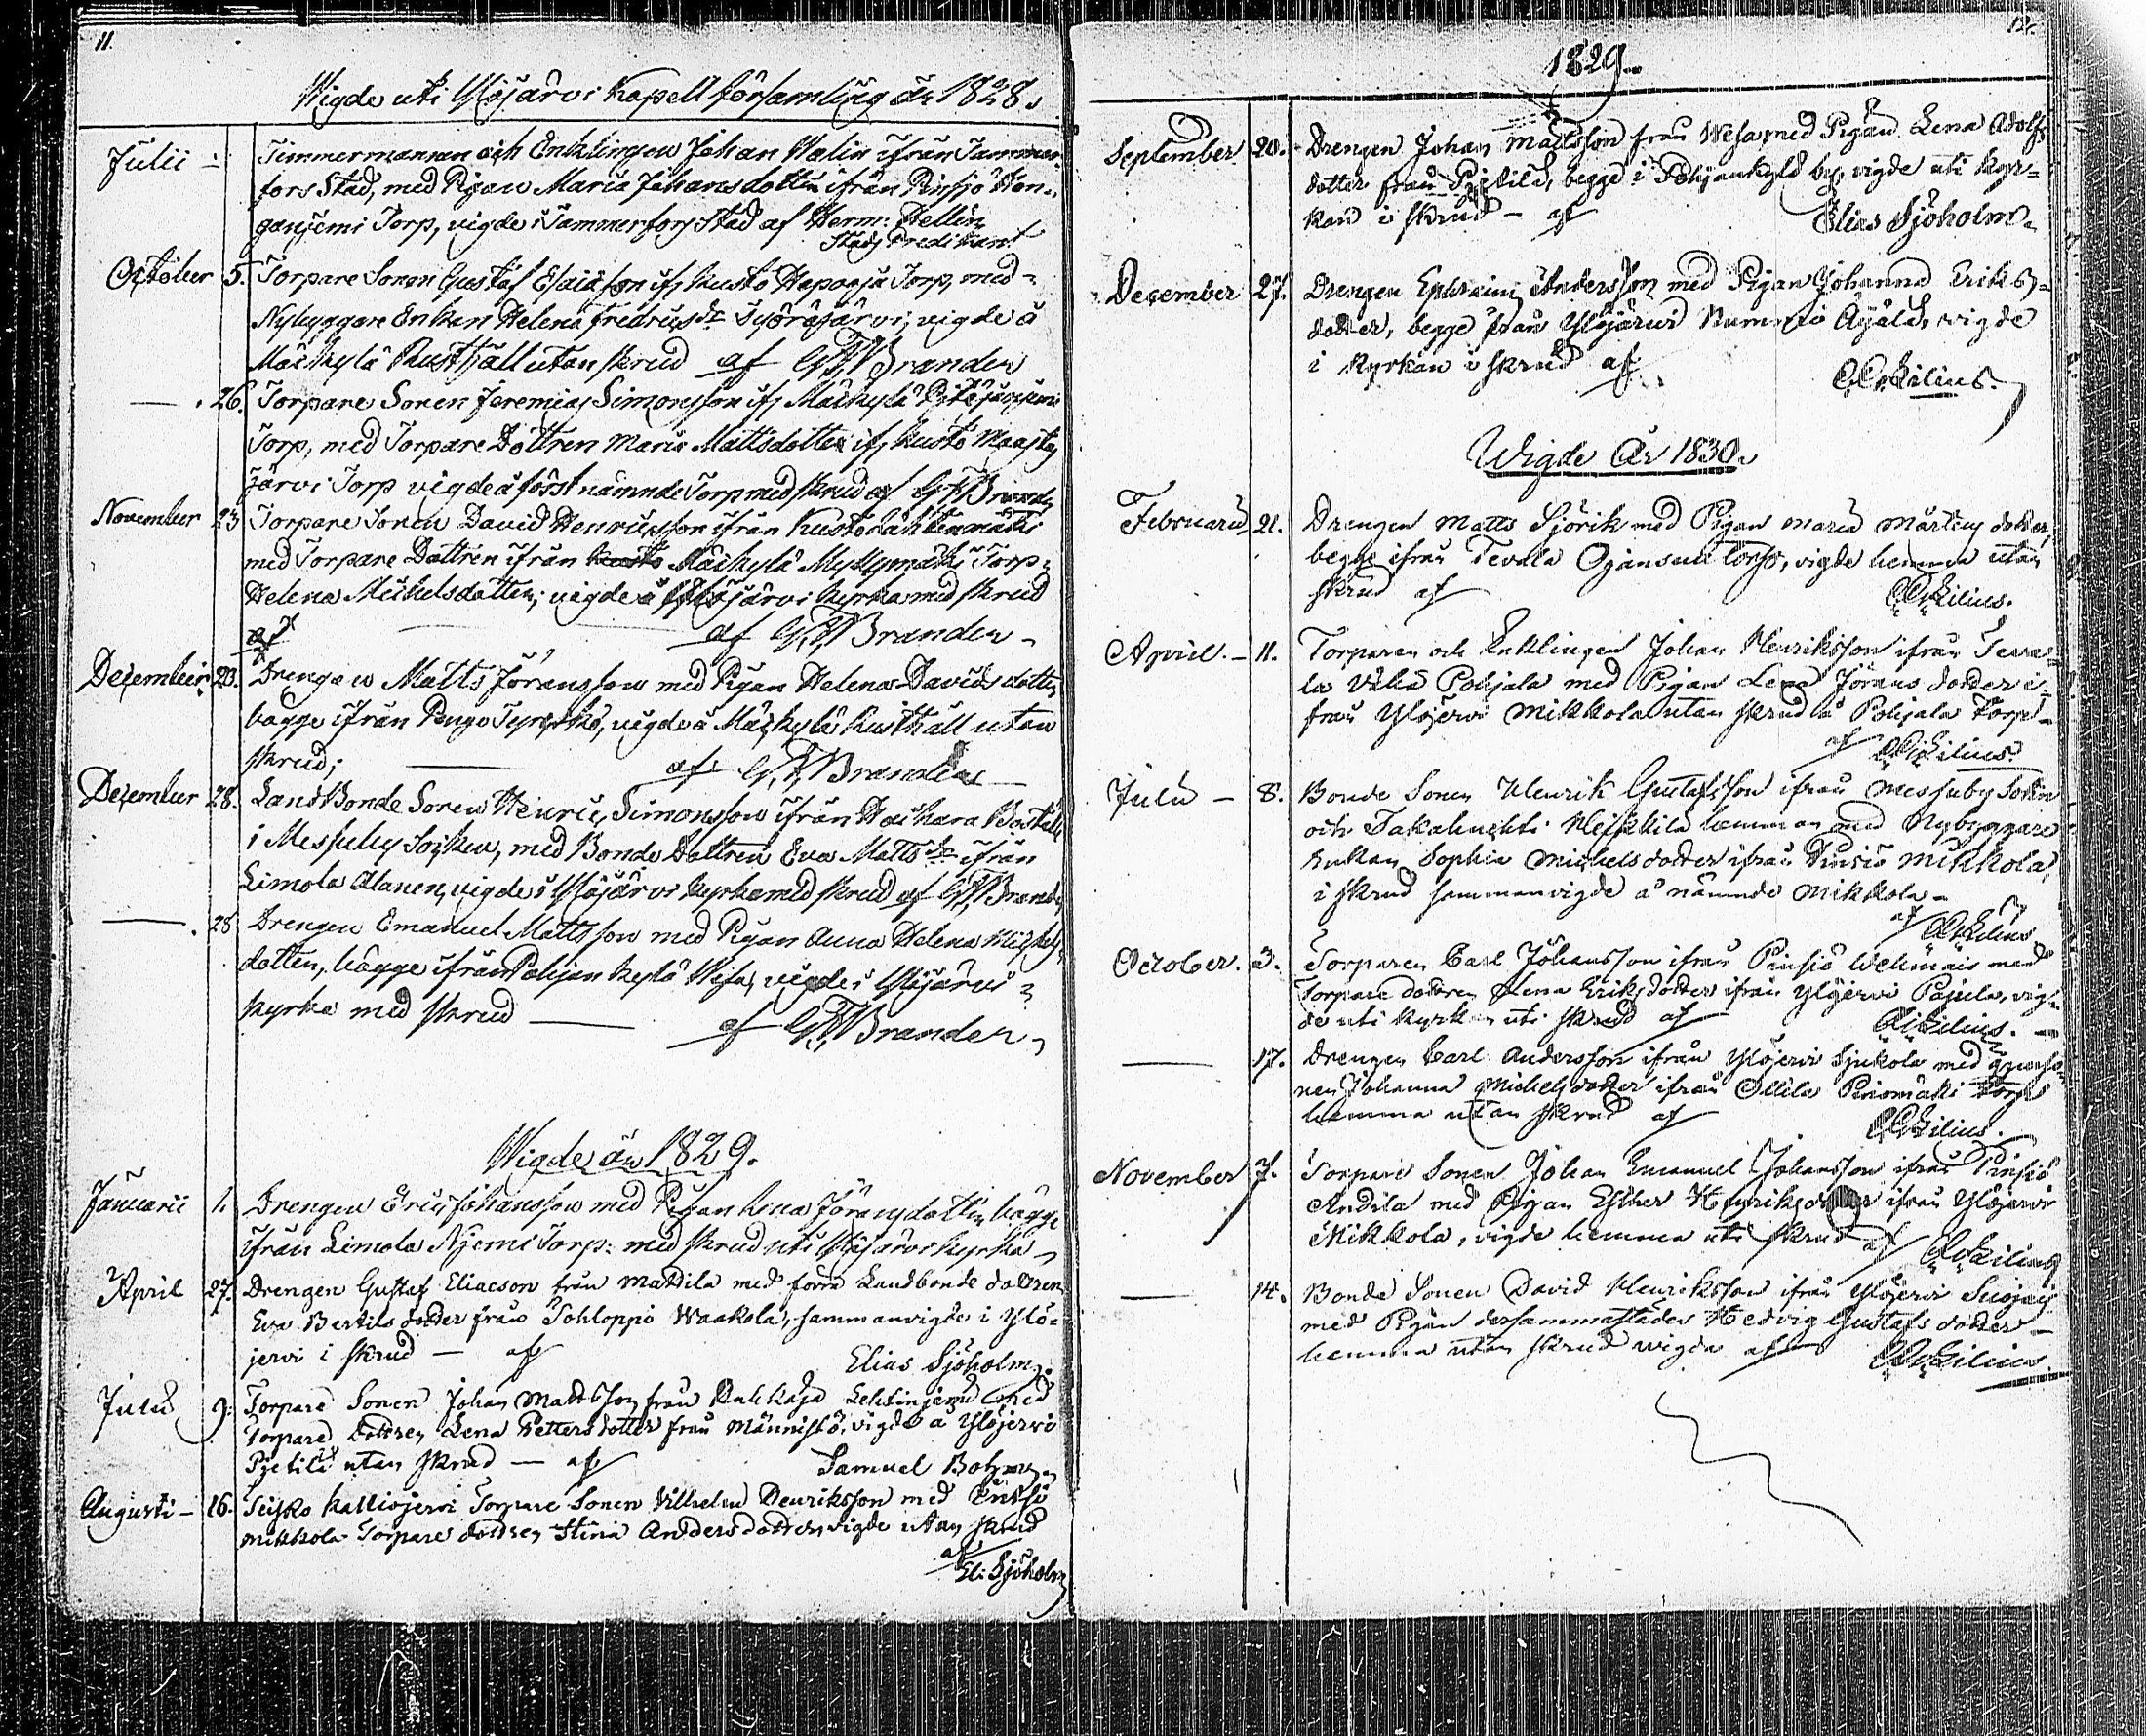 11.
Wigde uti Ylöjärvi Kapell församling år 1828.
Julii - Timmermannen och Enklingen Johan Walin ifrån Tammer-
fors Stad, med Pigan Maria Johansdotter ifrån Pinsjö Hon-
ganjemi Torp, vigde i Tammerfors Stad af Herm: Hellin
Stads Predikant
October 5. Torpare Sonen Gustaf Esaiasson ifr Kusto Haposja Torp, med
Nybyggare Enkan Helena Fredricsdr vigde å
Mäckylä Rusthåll utan skrud af G.F. Brander
— . 26. Torpare Sonen Jeremias Simonsson ifr Mäckylä
Torp, med Torpare Dottren Maria Mattsdotter ifr Kusto
järvi Torp vigde å först nämnde Torp med skrud af G.F. Brander
November 23 Torpare Sonen David Henricsson ifrån Kusto Lahtenmäki
med Torpare Dottren ifrån Kusto Mäckylä Myllymäki Torp:
Helena Michelsdotter; vigde å Ylöjärvi Kyrka med skrud
af
af G.F. Brander
December 20. Drengen Matts Jöransson med Pigan Helena Davidsdotter
bägge ifrån Pengo vigde å Mäckylä Rusthåll utan
skrud; — af G.F. Brander
December 28. Landbonde Sonen Henric Simonsson ifrån Haihara
i Messuby Socken, med Bonde Dottren Eva Mattsdr ifrån
Limola Alanen, vigde i Ylöjärvi Kyrka med skrud af G.F. Brander
— . 28 Drengen Emanuel Mattsson med Pigan Anna Helena Michels
dotter, bägge ifrån Pohjankylä Wesa, vigde i Ylöjärvi
Kyrka med skrud — af G.F. Brander
Wigde år 1829.
Januarii 1. Drengen Eric Johansson med Pigan Lisa Jöransdotter bägge
ifrån Limola Njemi Torp: med skrud uti Ylöjärvi Kyrka
April 27. Drengen Gustaf Eliacson från Mattila med förra Landbonde dottren
Eva Bertils dotter från Tohloppi Waakola, sammanvigde i Ylö-
jervi i skrud — af Elias Sjöholm.
Julii 9. Torpare Sonen Johan Mattsson från med
Torpare Dottren Lena Petters dotter från Männistö, vigde å Ylöjervi
Pietilä utan skrud — af Samuel Bohm
Augusti - 16. Teisko Kalliojervi Torpare Sonen Vilhelm Henriksson med Pinsiö
Mikkola Torpare dottren Stina Anders dotter vigde utan skrud
af
El: Sjöholm
12.
1829.
September 20. Drengen Johan Mattsson från Wesa, med Pigan Lena Adolfs
dotter från Pietilä, begge i Pohjankylä by, vigde uti kyr-
kan i skrud - af Elias Sjöholm.
December 27. Drengen Ephraim Andersson med Pigan Johanna Eriks
dotter, begge från Ylöjärvi Nummis Äijälä, vigde
i kyrkan i skrud af
C.G. Lilius.
Wigde År 1830.
Februarii 21. Drengen Matts Sjörik med Pigan Maria Mårtens dotter,
begge ifrån Tevala Ojansuu torp, vigde hemma utan
skrud af Lilius.
April. - 11. Torparen och Enklingen Johan Henriksson ifrån Teva-
la Pohjala med Pigan Lena Jörans dotter i-
från Ylöjervi Mikkola utan skrud å Pohjala Torp-
af Lilius.
Julii - 8. Bonde Sonen Henrik Gustafsson ifrån Messuby Sokn
och Takahuchti Heikkilä hemman med Nybyggare
Enkan Sophia Michelsdotter ifrån Pinsiö Mikkola,
i skrud sammanvigde å nämnde Mikkola -
af Lilius
October. 3. Torparen Carl Johansson ifrån Pinsiö Wehmais med
Torpare dottren Lena Eriksdotter ifrån Ylöjervi Pajula, vig-
de uti kyrkan uti skrud af Lilius.
— 17. Drengen Carl Andersson ifrån Ylöjervi Sjukola med
Johanna Michelsdotter ifrån Ollila Pinomäki Torp
hemma utan skrud af Lilius.
November 7. Torpare Sonen Johan Emanuel Johansson ifrån Pinsiö
Andila med Pigan Esther Henriksdotter ifrån Ylöjärvi
Mikkola, vigde hemma uti skrud af Lilius
— 14. Bonde Sonen David Henriksson ifrån Ylöjervi
med Pigan dersammastädes Hedvig Gustafs dotter -
hemma utan skrud vigde af Lilius.